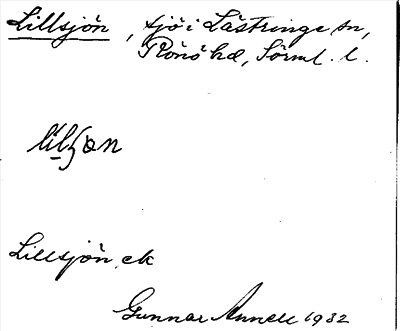 Lillsjön, sjö i Lästringe sn,
Rönö hd, Sörml. l.
Lillsjön, ek
Gunnar Annell 1932